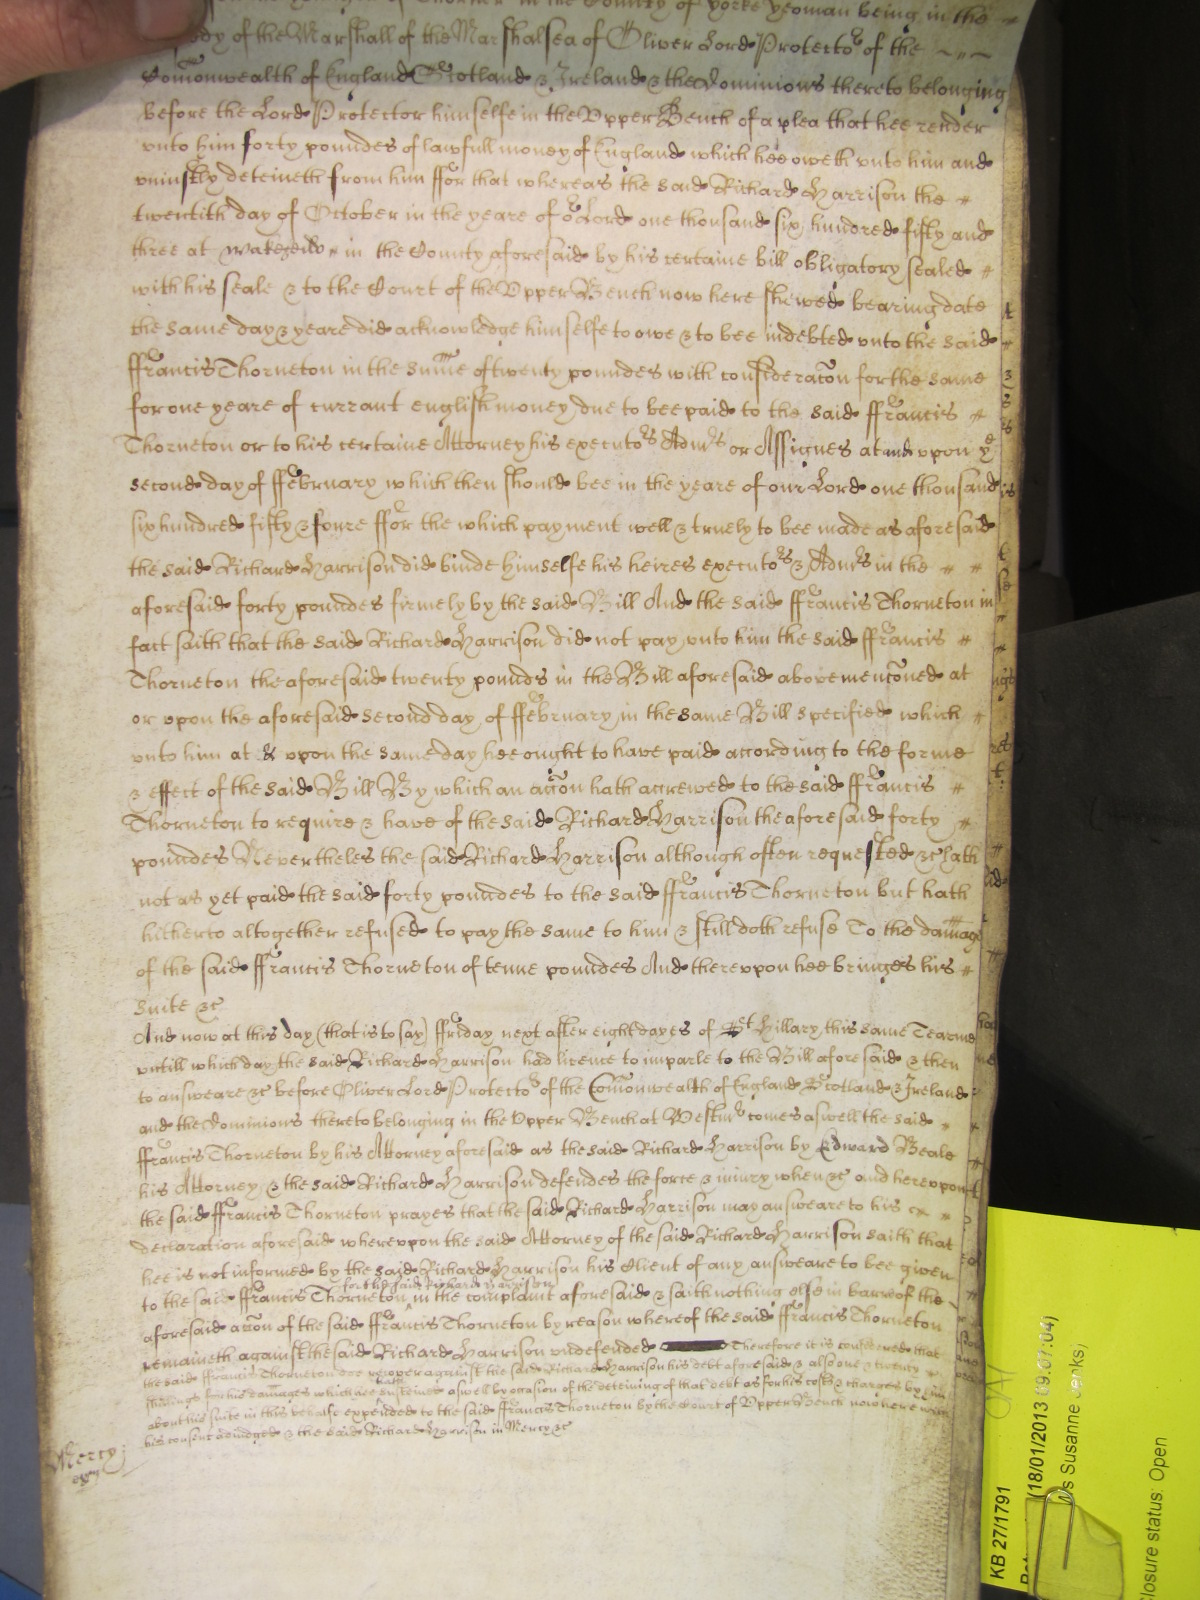 the younger of Thorner in the County of yorke yeoman being in the
Custody of the Marshall of the Marshalsea of Oliver Lord Protector of the
Comonwealth of England Scotland & Ireland & the Dominions thereto belonging
before the Lord Protector himselfe in the Vpper Bench of a plea that hee render
vnto him forty poundes of lawfull money of England which hee oweth vnto him and
vniustly deteineth from him ffor that whereas the said Richard Harrison the
twentith day of October in the yeare of or Lord one thousand six hundred fifty and
three at Wakefeild in the County aforesaid by his certaine bill obligatory sealed
with his seale & to the Court of the Vpper Bench now here shewed bearing date
the same day & yeare did acknowledge himselfe to owe & to bee indebted vnto the said
ffrancis Thorneton in the sume of twenty poundes with consideracon for the same
for one yeare of currant english money due to bee paid to the said ffrancis
Thorneton or to his certaine Attorney his executors Admrs or Assignes at and vpon ye
second day of ffebruary which then should bee in the yeare of our Lord one thousand
six hundred fifty & foure ffor the which payment well & truely to bee made as aforesaid
the said Richard Harrison did binde himselfe his heires executors & Admrs in the
aforesaid forty poundes firmely by the said Bill And the said ffrancis Thorneton in
fact saith that the said Richard Harrison did not pay vnto him the said ffrancis
Thorneton the aforesaid twenty pounds in the Bill aforesaid above menconed at
or vpon the aforesaid second day of ffebruary in the same Bill specified which
vnto him at & vpon the same day hee ought to have paid according to the forme
& effect of the said Bill By which an accon hath accrewed to the said ffrancis
Thorneton to require & have of the said Richard Harrison the aforesaid forty
poundes Nevertheles the said Richard Harrison although often requested &c hath
not as yet paid the said forty poundes to the said ffrancis Thorneton but hath
hitherto altogether refused to pay the same to him & still doth refuse To the damage
of the said ffrancis Thorneton of tenne poundes And therevpon hee bringes his
suite &c
And now at this day (that is to say) ffriday next after eight dayes of St Hillary this same Tearme
vntill which day the said Richard Harrison had licence to imparle to the Bill aforesaid & then
to answeare &c before Oliver Lord Protector of the Comonwealth of England Scotland & Ireland
and the Dominions thereto belonging in the Vpper Bench at Westmr comes aswell the said
ffrancis Thorneton by his Attorney aforesaid as the said Richard Harrison by Edward Beale
his Attorney & the said Richard Harrison defendes the force & iniury when &c and herevpon
the said ffrancis Thorneton prayes that the said Richard Harrison may answeare to his
declaration aforesaid wherevpon the said Attorney of the said Richard Harrison saith that
hee is not informed by the said Richard Harrison his Client of any answeare to bee given
for the said Richard Harrison
to the said ffrancis Thorneton in the complaint aforesaid & saith nothing else in barr of the
aforesaid accon of the said ffrancis Thorneton by reason whereof the said ffrancis Thorneton
remaineth against the said Richard Harrison vndefended Therefore it is considered that
the said ffrancis Thorneton doe recover against the said Richard Harrison his debt aforesaid & also one & twenty
shillings for his damages which hee hath susteined aswell by occasion of the deteining of that debt as for his costs & charges by him
about his suite in this behalfe expended to the said ffrancis Thorneton by the Court of Vpper Bench now here with
his consent adiudged & the said Richard Harrison in Mercy &c
Mercy
KB 27/1791
(18/01/2013 09:07:04)
Susanne Jenks)
closure status: Open